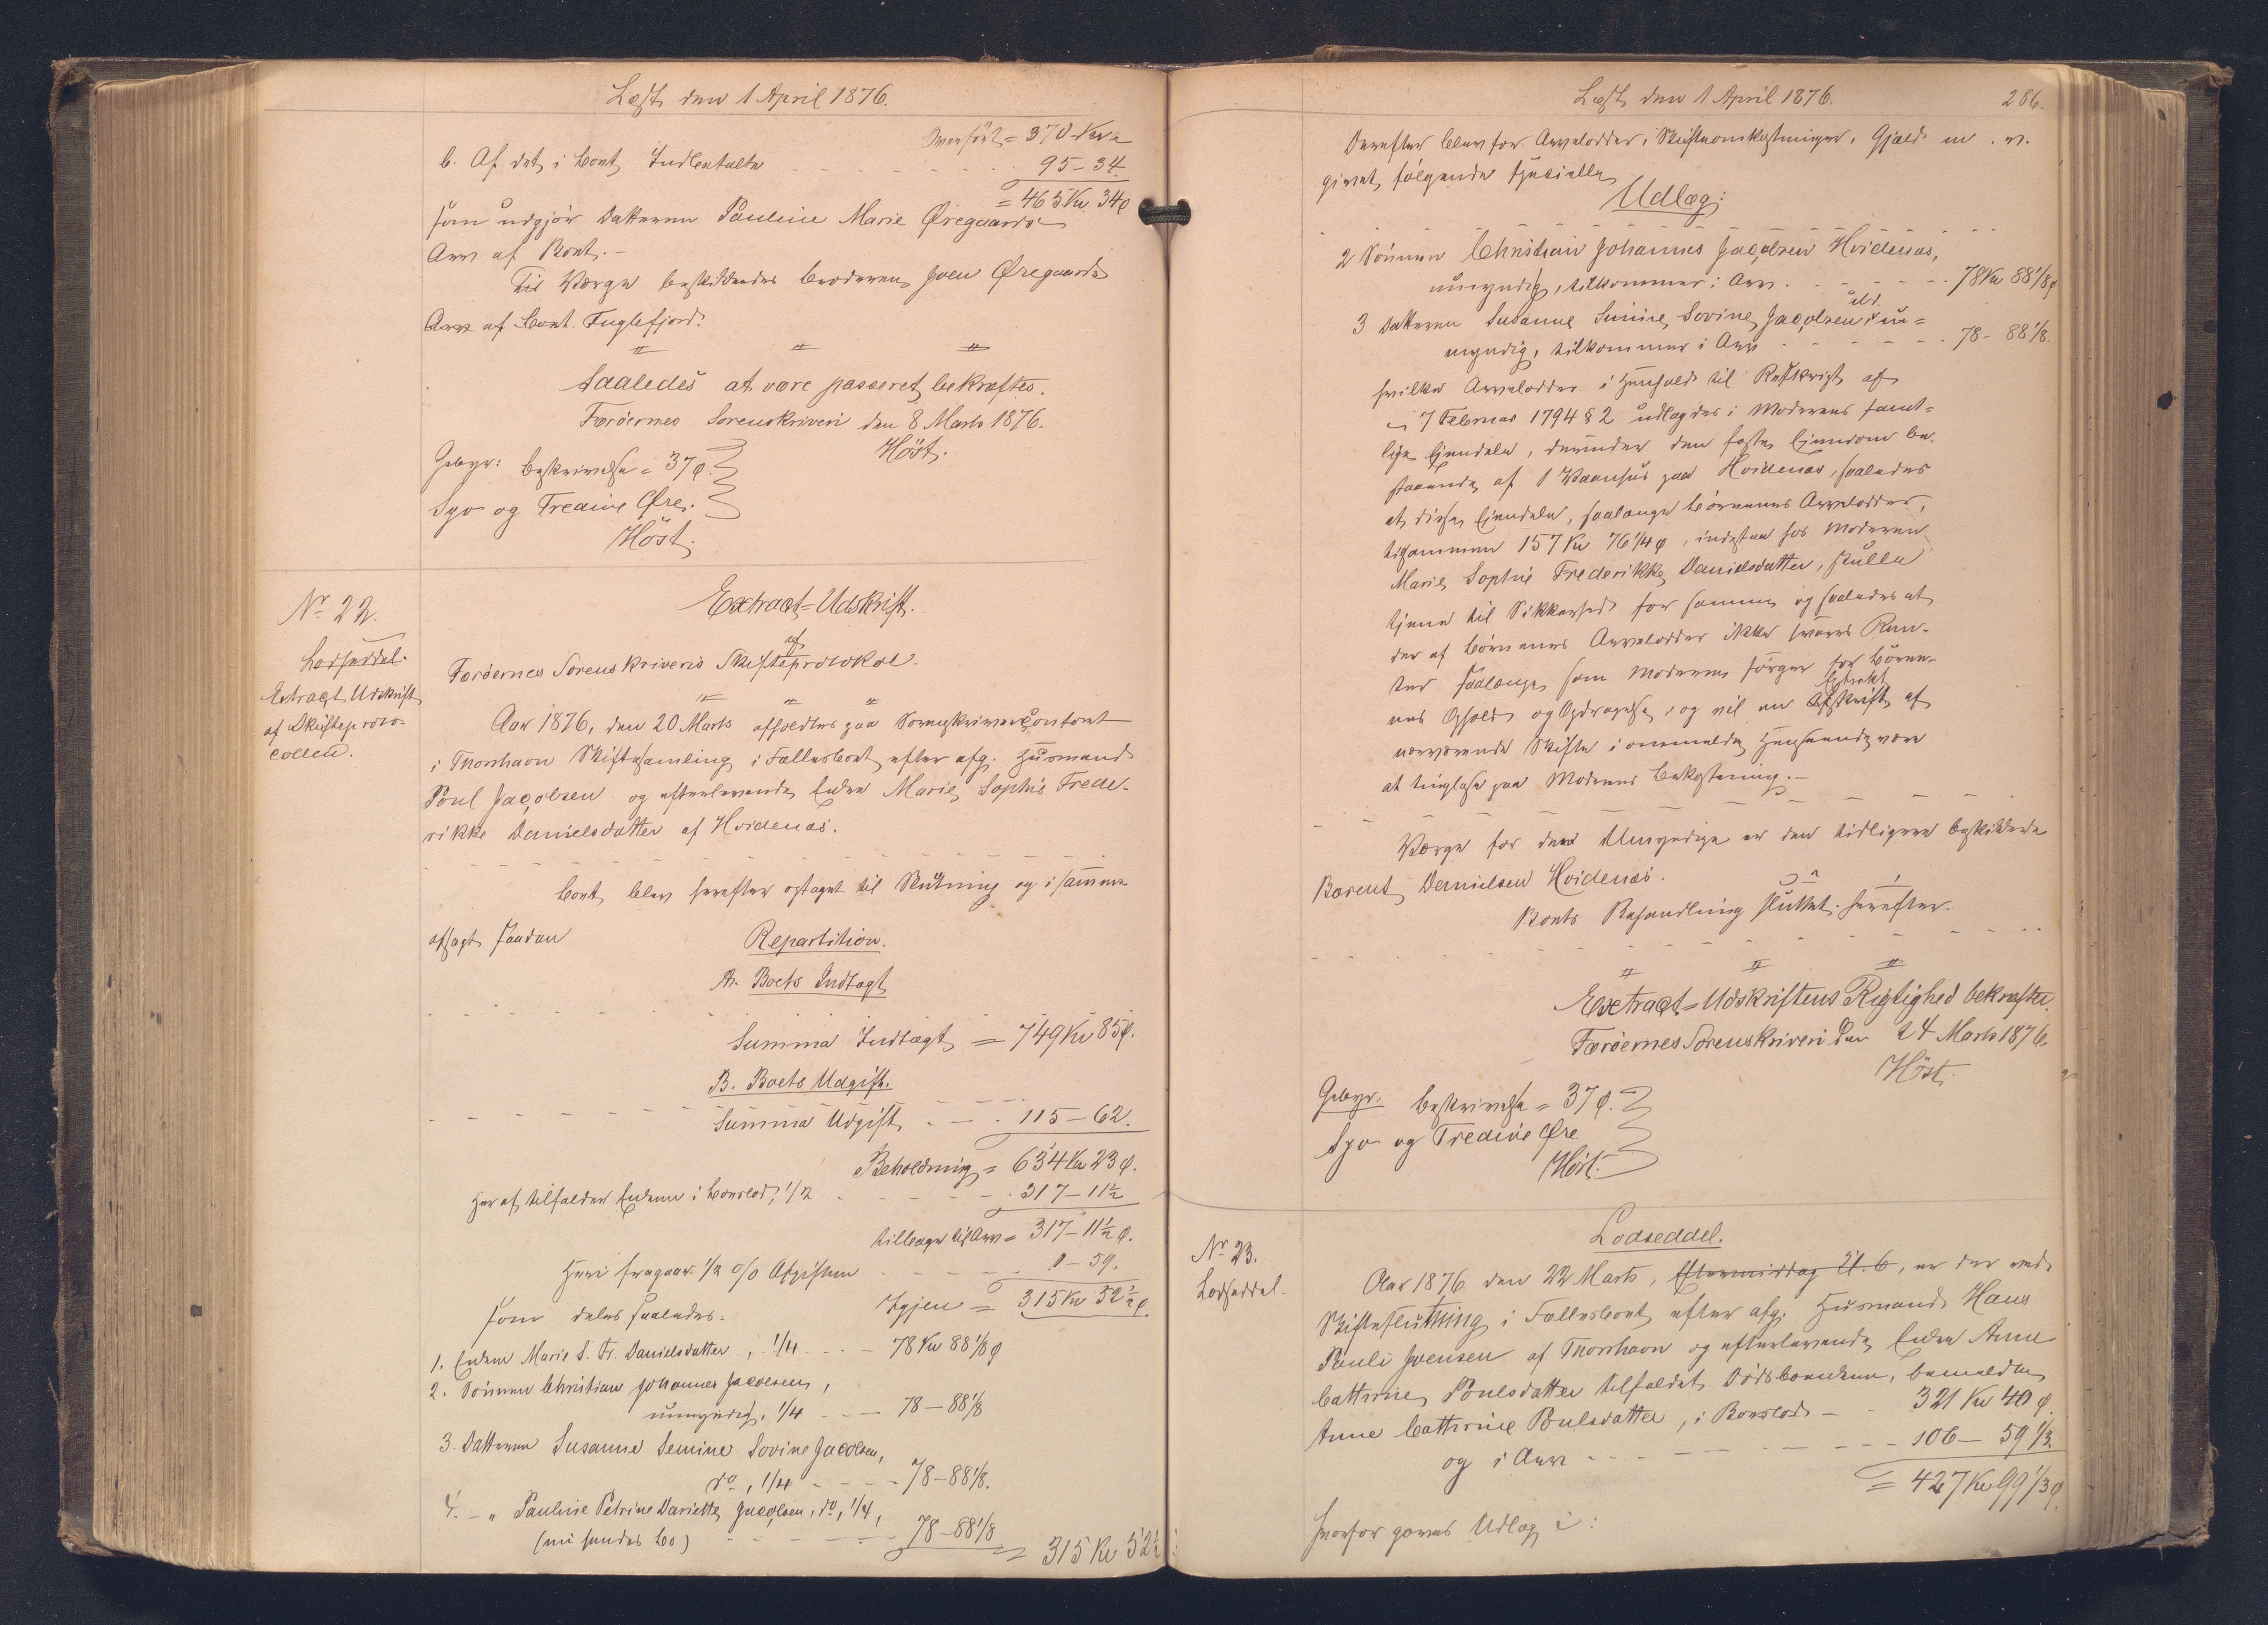 Læst den 1 April 1876.
Overført = 370 Kr "
b. Af det i Boet Indbetalte 95 - 34.
= 465 Kr. 34 ø
som udgjör Datteren Pauline Marie Øregaards
Arv af Boet. -
Til Værge beskikkedes Broderen Joen Øregaard
Arv af Boet. Fuglefjord.
Saaledes at være passeret bekræftes.
Færöernes Sorenskriveri den 8 Marts 1876.
Höst.
Gebyr: Beskrivelse = 37 ø.
Syv og Tredive Øre.
Höst.
No 22.
Lodseddel.
Extract Udskrift
af Skifteproto-
collen.
Extract-Udskrift
af
Færöernes Sorenskriveris Skifteprotokol.
Aar 1876, den 20 Marts afholdtes paa Sorenskriverkontoret
i Thorshavn Skiftesamling i Fællesboet efter afg. Huusmand
Poul Jacobsen og efterlevende Enke Marie Sophie Frede-
rikke Danielsdatter af Hvidenæs.
Boet blev herefter optaget til Slutning og i samme
afsagt saadan
Repartition.
A. Boets Indtægt
Summa Indtægt = 749 Kr 85 ø.
B. Boets Udgift.
Summa Udgift 115 - 62.
Beholdning = 634 Kr 23 ø.
Heraf tilfalder Enken i Boeslod, 1/2 317 - 11 1/2
tilbage til Arv = 317 - 11 1/2 ø.
Heri fragaar 1/2 % Afgiften 1 - 59.
Igjen = 315 Kr 52 1/2 ø.
som deles saaledes.
1. Enken Marie S. Fr. Danielsdatter, 1/4 78 Kr 88 1/8 ø
2. Sönnen Christian Johannes Jacobsen,
umyndig, 1/4 78 - 88 1/8
3. Datteren Susanne Semine Sovine Jacobsen,
do, 1/4 78 - 88 1/8.
4. - " Pauline Petrine Dariette Jacobsen, do, 1/4,
(nu hendes Bo) 78 - 88 1/8 = 315 Kr 52 1/2
Læst den 1 April 1876. 286.
Derefter blev for Arvelodder, Skifteomkostninger, Gjæld m. v.
givet følgende specielle
Udlæg:
2 Sönnen Christian Johannes Jacobsen Hvidenæs,
umyndig, tilkommer i Arv 78 Kr 88 1/8 ø
3 Datteren Susanne Simine Sovine Jacobsen ibd. um=
myndig, tilkommer i Arv 78 - 88 1/8.
hvilke Arvelodder i Henhold til Reskript af
7 Februar 1794 § 2 udlægdes i Moderens samt-
lige Ejendele, derunder den faste Ejendom be-
staaende af 1 Vaanhus paa Hvidenæs, saaledes
at disse Ejendele, saalænge Börnenes Arvelodder,
tilsammen 157 Kr 76 1/4 ø, indestaa hos Moderen
Marie Sophie Frederikke Danielsdatter, skulle
tjene til Sikkerhed for samme og saaledes at
der af Börnenes Arvelodder ikke svares Ren-
ter saalænge som Moderen sörger for Börne-
nes Ophold og Opdragelse, og vil en Extrakt Afskrift af
nærværende Skifte i ommeldte Henseende være
at tinglæse paa Moderens Bekostning. -
Værge for den Umyndige er den tidligere beskikkede
Barent Danielsen Hvidenæs.
Boets Behandling sluttet herefter.
Extract-Udskriftens Rigtighed bekræfter.
Færöernes Sorenskriveri den 24 Marts 1876
Höst.
Gebyr. Beskrivelse = 37 ø.
Syv og Tredive Øre
Höst.
No 23.
Lodseddel.
Lodseddel.
Aar 1876 den 22 Marts, Eftermiddag Kl. 6, er der ved
Skifteslutning i Fællesboet efter afg. Huusmand Hans
Pauli Joensen af Thorshavn og efterlevende Enke Anne
Cathrine Poulsdatter tilfaldet Dödsboenken, bemeldte
Anne Cathrine Poulsdatter, i Boeslod 321 Kr 40 ø.
og i Arv 106 - 59 1/3.
= 427 Kr 99 1/3 ø.
hvorfor gjøres Udlæg i: